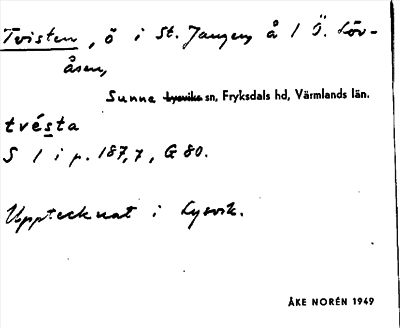 Tvisten, ö i St. Jangen, å 1 Ö. Löv-
åsen,
Sunne Lysviks sn, Fryksdals hd, Värmlands län.
tvésta
S 1 i p. 187,7, G 80.
Upptecknat i Lysvik.
ÅKE NORÉN 1949